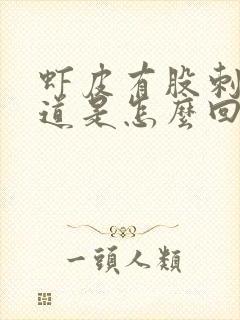 虾皮有股刺
道是怎麼回
一頭人類